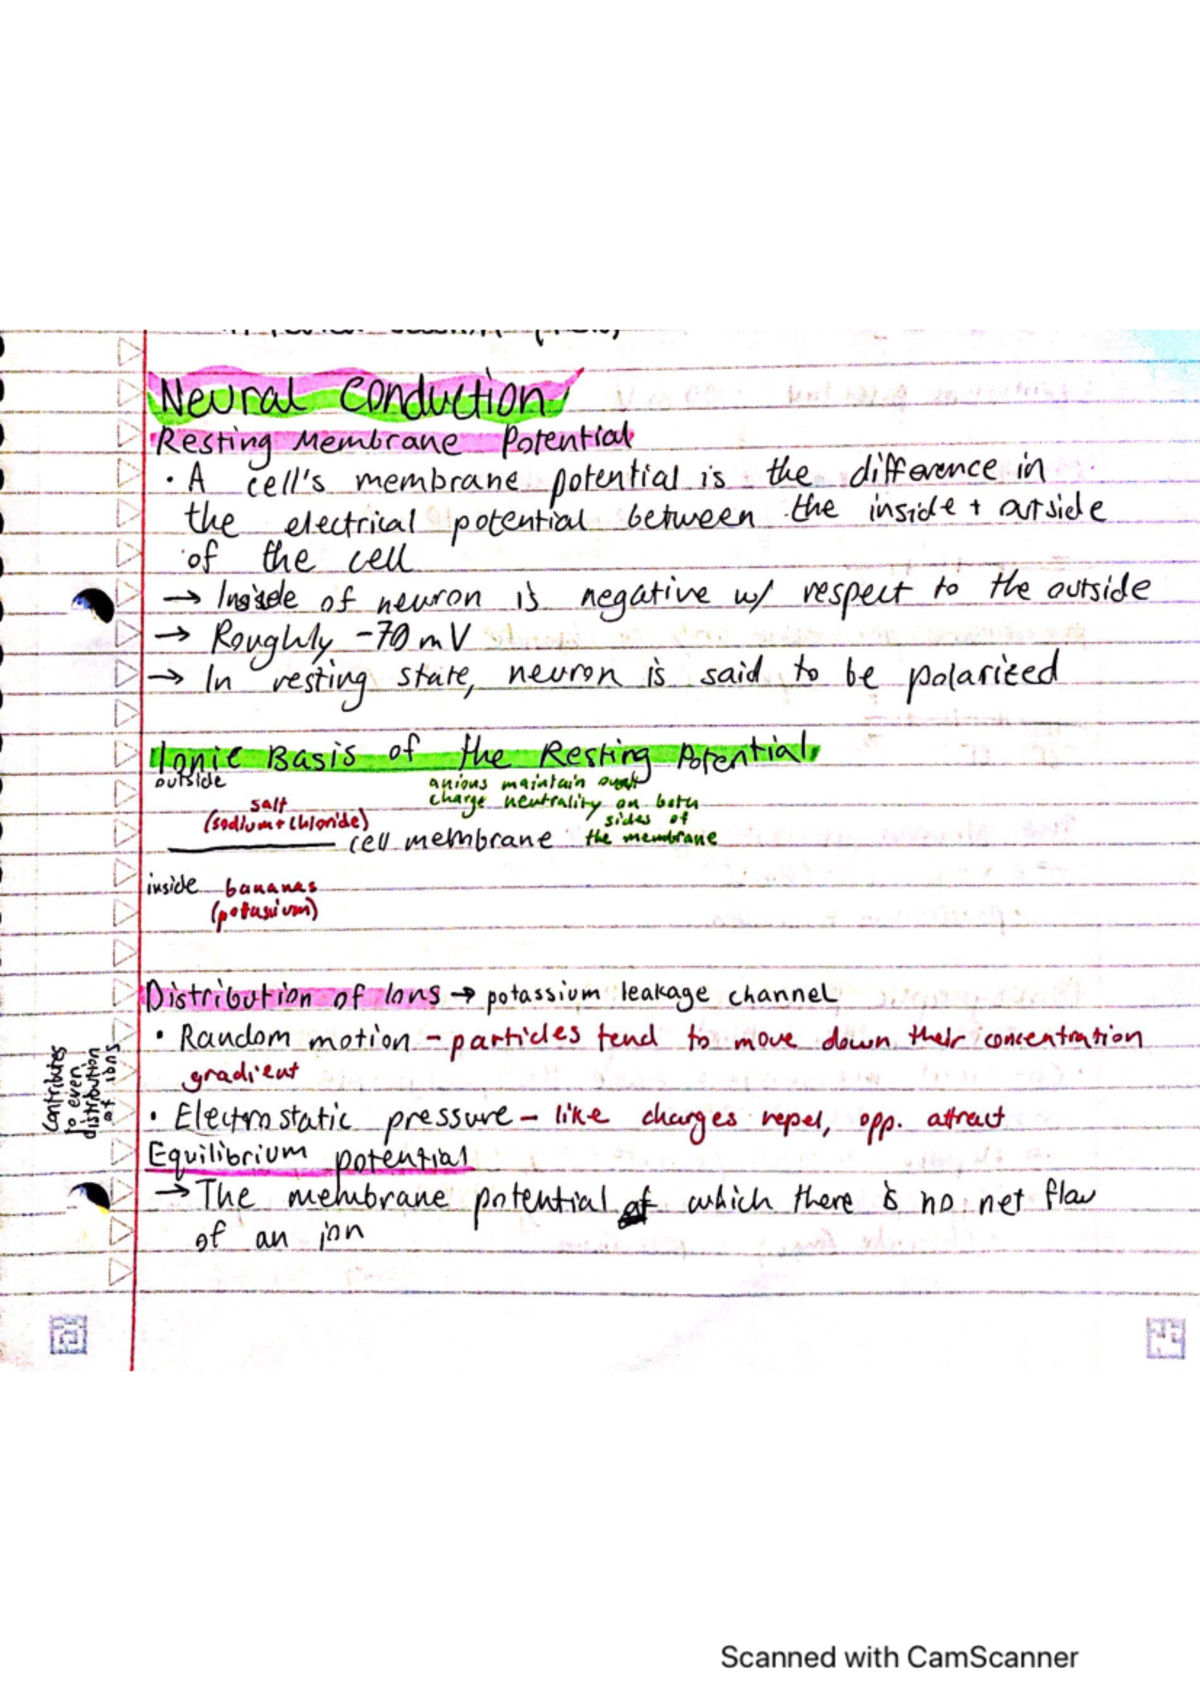 Neural Conduction
Resting Membrane Potential
· A cell's membrane potential is the difference in
the electrical potential between the inside + outside
of the cell
→ Inside of neuron is negative w/ respect to the outside
→ Roughly -70 mV
→ In resting state, neuron is said to be polarized
Ionic Basis of the Resting Potential
outside
anions maintain
charge neutrality on both
sides of
the membrane
salt
(sodium + chloride)
cell membrane
inside bananas
(potassium)
Distribution of Ions → potassium leakage channel
· Random motion - particles tend to move down their concentration
gradient
· Electrostatic pressure - like charges repel, opp. attract
contributes
to even
distribution
of ions
Equilibrium potential
→ The membrane potential at which there is no net flow
of an ion
Scanned with CamScanner